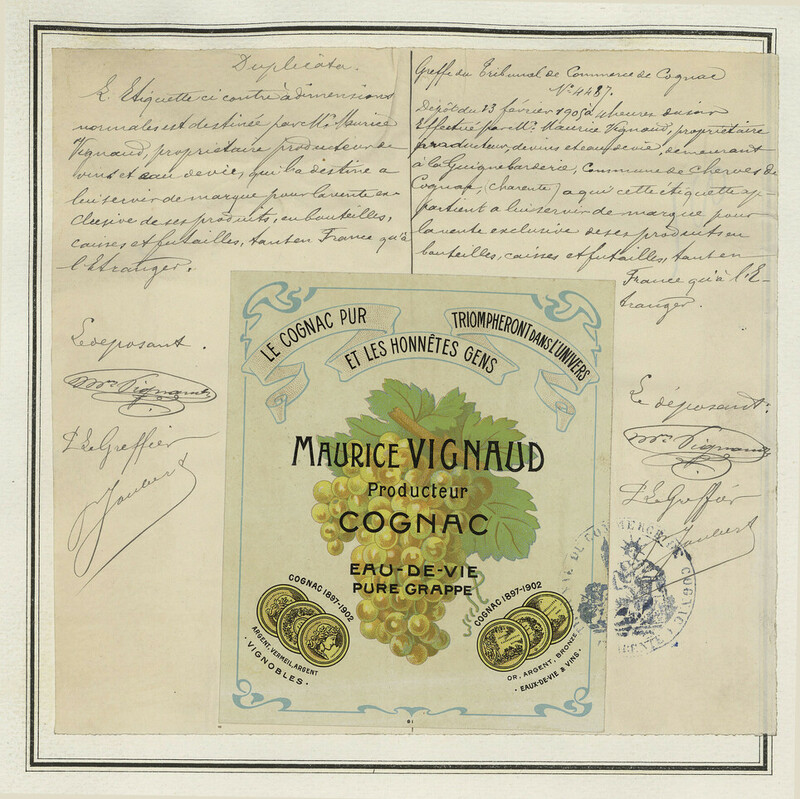 Duplicata.
L'Etiquette ci contre à dimensions
normales est destinée par Mr. Maurice
Vignaud, propriétaire producteur de
vins et eau de vie, qui la destine a
lui servir de marque pour la vente ex-
clusive de ses produits, en bouteilles,
caisses et futailles, tant en France qu'à
l'Etranger.
Le déposant.
Mce Vignaud
Le Greffier
Joubert
Greffe du Tribunal de Commerce de Cognac
No. 4487.
Dépôt du 13 février 1905 à 4 heures du soir
Effectué par Mr. Maurice Vignaud, propriétaire
producteur, de vins et eau de vie, demeurant
à la Guignebarderie, Commune de Cherves de
Cognac, (Charente) a qui cette étiquette ap-
partient a lui servir de marque pour
la vente exclusive de ses produits en
bouteilles, caisses et futailles, tant en
France qu'à l'E-
tranger.
Le déposant:
Mce Vignaud
Le Greffier
Joubert
LE COGNAC PUR
ET LES HONNÊTES GENS
TRIOMPHERONT DANS L'UNIVERS
MAURICE VIGNAUD
Producteur
COGNAC
EAU-DE-VIE
PURE GRAPPE
COGNAC 1897-1902
ARGENT, VERMEIL, ARGENT
· VIGNOBLES ·
COGNAC 1897-1902
OR, ARGENT, BRONZE
· EAUX-DE-VIE & VINS ·
DE COMMERCE DE COGNAC